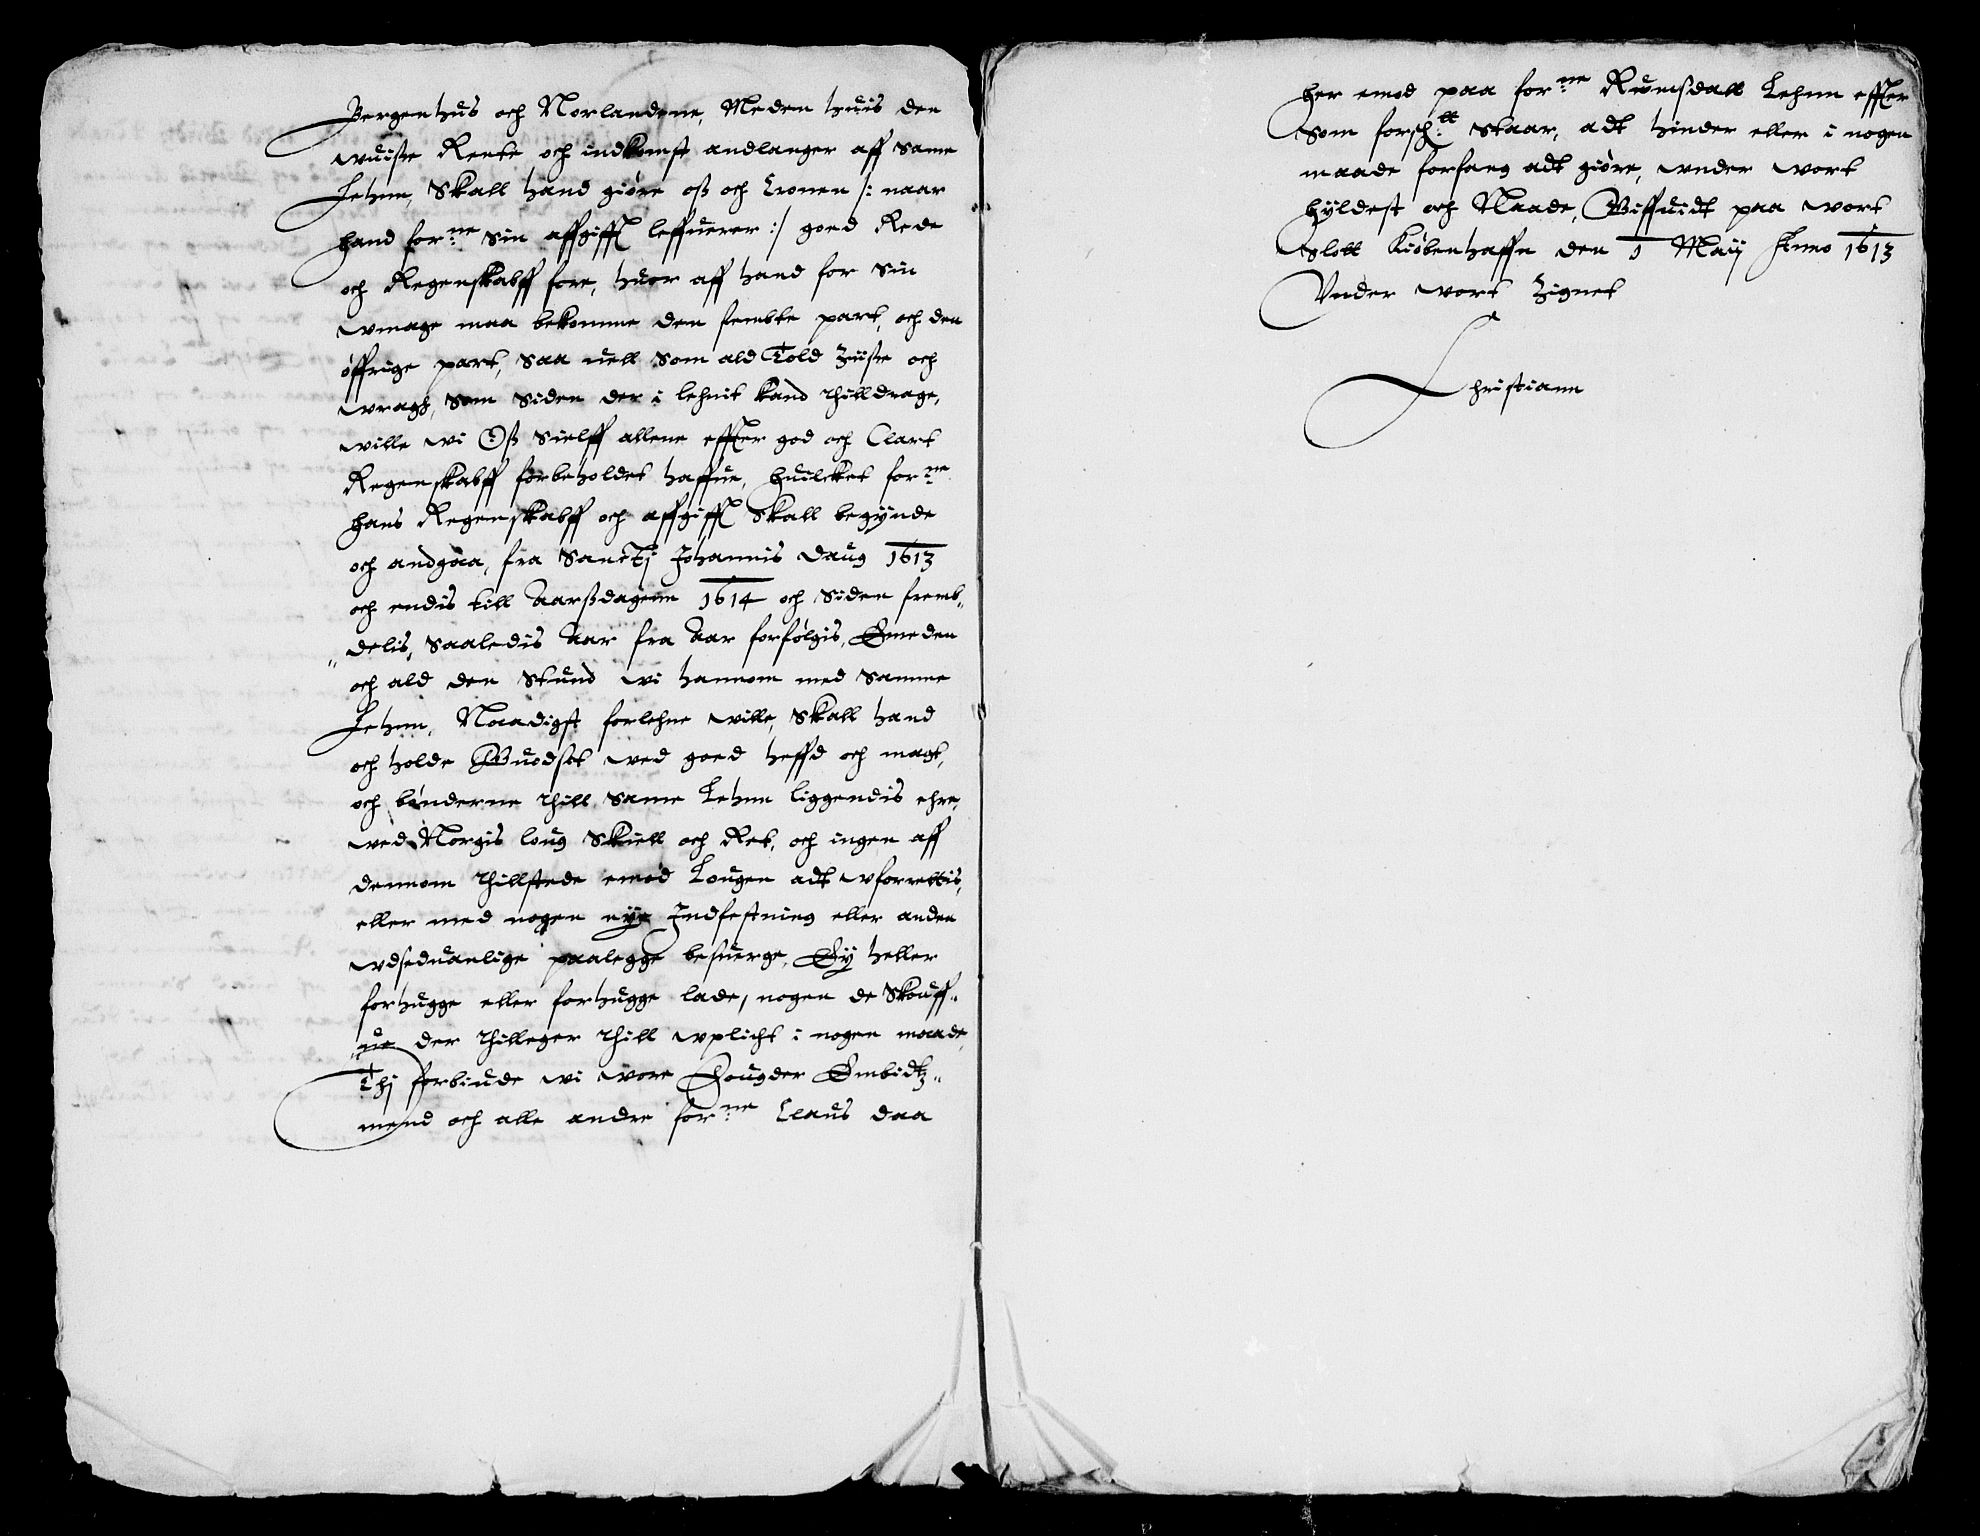 Bergenhus och Norlandene, Meden huis den
wuisse Rente och indkomst andlanger aff same
Lehnn, Skall hand giøre oss och Cronen /: naar
hand forne sin affgifft leffuerer :/ goed Rede
och Regenskabff fore, huor aff hand for sin
wmage maa bekomme den fembte part, och den
øffrige part, saa uell som ald Told Züsse och
wragh, som siden der i lehnit kand thilldrage,
wille wi Oss sielff allene effter god och Clart
Regenskabff forbeholdet haffue, huilcket forne
hans Regenskabff och affgifft Skall begynde
och andgaa, fra Sanctj Johannis daug 1613
och endis till Aarssdagenn 1614 och siden fremb„
„delis, saaledis Aar fra Aar forfølgis, Emeden
och ald den Stund wi hannom med samme
Lehnn, Naadigst forlehne wille, Skall hand
och holde Guodset wed goed heffd och magt,
och bønderne thill same Lehnn liggendis ehre,
wed Norgis loug Skiell och Ret, och ingen aff
dennom thillstede emod Lougen adt wforrettis,
eller med nogen nye Indfestning eller anden
wdseduanlige paalegge besuerge, Ey heller
forhugge eller forhugge lade, nogen de Skouff„
„ue der thilleger thill wplicht i nogen maade,
Thj forbiude wi wore Fougder Embidtz„
mend och alle andre forne Claus daa
her emod paa forne Rumssdall Lehnn effter
som forschtt staar, adt hinder eller i nogen
maade forfang adt giøre, wnder wort
hyldest och Naade, Giffuidt paa wort
Slott Kiøbenhaffn den 1 Maij Anno 1613
Vnder wort Zignet
Christiann